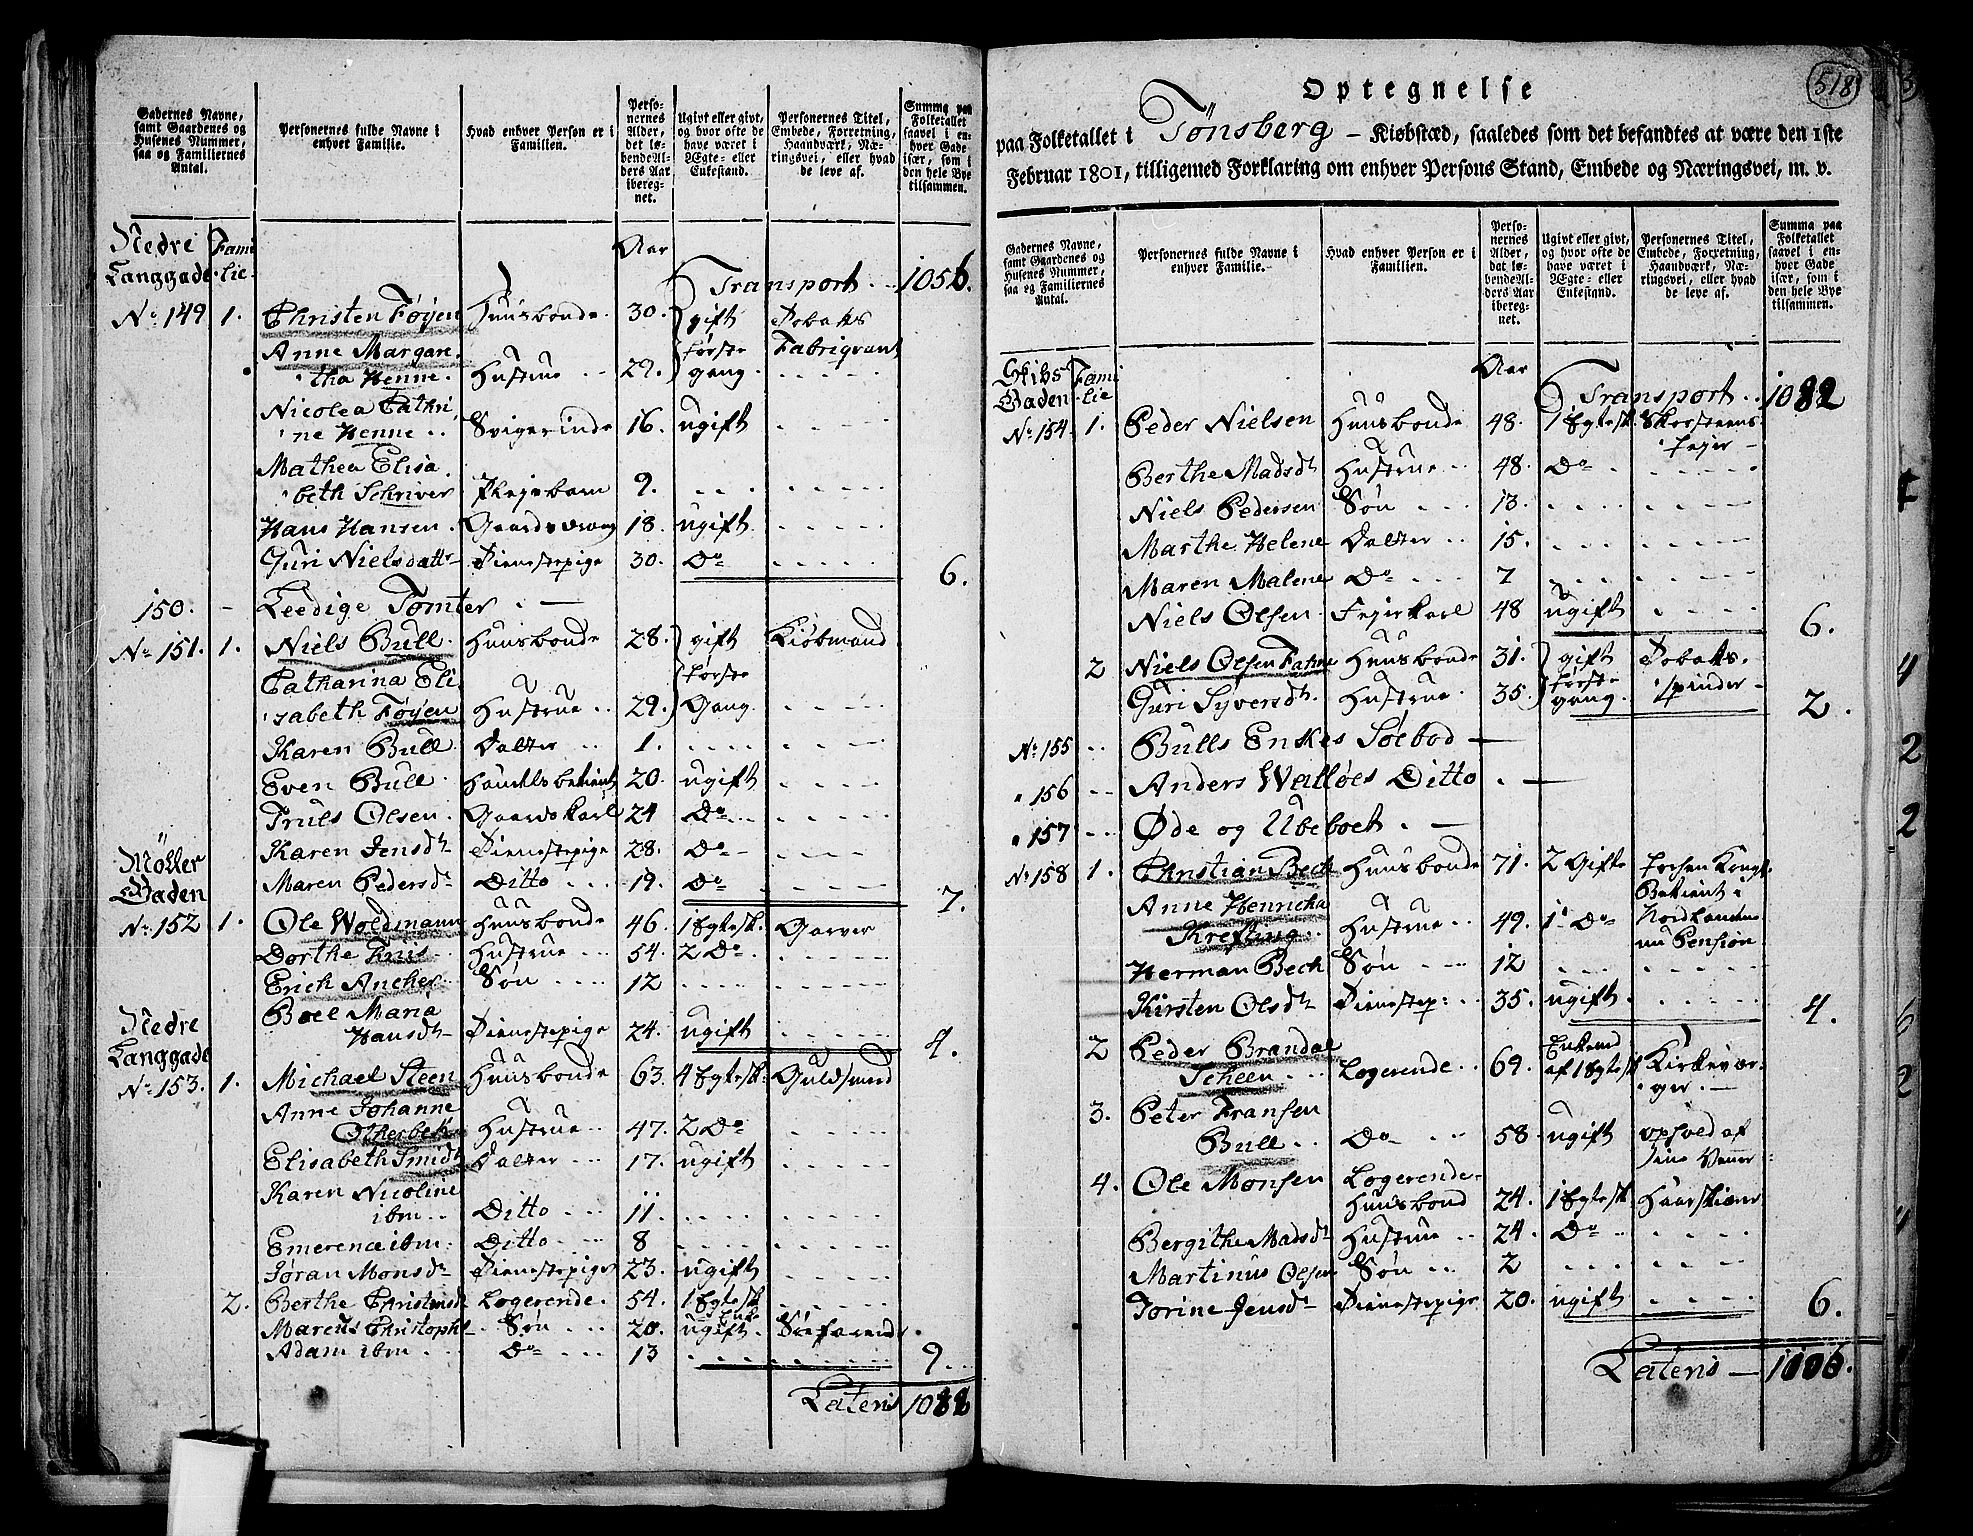 Gadernes Navne, samt Gaardenes og Husenes Nummer, saa og Familiernes Antal.
Personernes fulde Navne i enhver Familie.
Hvad enhver Person er i Familien.
Personernes Alder, det løbende Alders Aar iberegnet.
Ugivt eller givt, og hvor ofte de have været i Ægte- eller Enkestand.
Personernes Titel, Embede, Forretning, Haandværk, Næringsvei, eller hvad de leve af.
Summa paa Folketallet saavel i enhver Gade især, som i den hele Bye tilsammen.
Nedre Langgade Familie Aar
Transport 1056.
No 149 1. Christen Føyen Huusbonde 30. gift Tobaks
Anne Margare- første Fabriqvant
tha Henne. Hustrue 29. gang
Nicolea Cathri-
ne Henne Svigerinde 16. ugift
Mathea Elisa-
beth Schriver Plejebarn 9.
Hans Hansen Gaardsdreng 18. ugift
Guri Nielsdattr Dienestepige 30. Do 6.
150. - Leedige Tomter
No 151. 1. Niels Bull Huusbonde 28. gift Kiøbmand
Catharina Eli- første
sabeth Føyen Hustrue 29. Gang
Karen Bull Datter 1.
Even Bull Handelsbetient 20. ugift
Truls Olsen Gaardskarl 24 Do
Karen Jensdtr Dienestepige 28. Do
Maren Pedersdr Ditto 19. Do 7.
Møller Gaden
No 152 1. Ole Woldmann Huusbonde 46. 1 Egtesk. Garver
Dorthe Friis Hustrue 54. 2 Do
Erich Ancher Søn 12
Boel Maria
Hansdtr Dienestepige 24. ugift 4.
Nedre Langgade
No 153. 1. Michael Steen Huusbonde 63. 4 Egtesk. Guldsmed
Anne Johanne
Otherbek Hustrue 47. 2 Do
Elisabeth Smidt Datter 17. ugift
Karen Nicoline
ibm Ditto 11.
Emerence ibm Ditto 8
Jøran Monsdr Dienestepige 23. ugift
2. Berthe Christensd Logerende 54. 1 Egtesk. Enke
Marcus Christoph Søn 20. ugift Søefarende
Adam ibm Do 13 9.
Lateris 1082
518
Optegnelse
paa Folketallet i Tönsberg - Kiøbstæd, saaledes som det befandtes at være den 1ste
Februar 1801, tilligemed Forklaring om enhver Persons Stand, Embede og Næringsvei, m. v.
Gadernes Navne, samt Gaardenes og Husenes Nummer, saa og Familiernes Antal.
Personernes fulde Navne i enhver Familie.
Hvad enhver Person er i Familien.
Personernes Alder, dat løbende Alders Aar iberegnet.
Ugivt eller givt, og hvor ofte de have været i Ægte- eller Enkestand.
Personernes Titel, Embede, Forretning, Haandværk, Næringsvei, eller hvad de leve af.
Summa paa Folketallet saavel i enhver Gade især, som i den hele Bye tilsammen.
Skibs Gaden Familie Aar
Transport 1082
No 154. 1. Peder Nielsen Huusbonde 48. 1 Egtesk. Skorsteens-
fejer
Berthe Madsdtr Hustrue 48. Do
Niels Pedersen Søn 13.
Marthe Helene Datter 15.
Maren Malene Do 7
Niels Olsen Fejerkarl 48 ugift 6.
2 Niels Olsen Fahne Huusbonde 31. gift Tobaks-
Guri Syversdtr Hustrue 35. første gang spinder 2.
No 155 Bulls Enkes Søebod
156 Anders Walløes Ditto
157 Øde og Ubeboet
No 158 1. Christian Bech Huusbonde 71. 2 Gifte
Anne Henricha Betient i
Krefting Hustrue 49. 1 Do Nordlandene nu Pension
Herman Bech Søn 12
Kirsten Olsdtr Dienestep: 35. ugift 4.
2 Peder Brandal Enkemd
Scheen Logerende 69. af 1 Egtesk Kirkevær-
ger
3. Peter Fransen
Bull Do 58 ugift ophold af sine Venner
4. Ole Monsen Logerende
Huusbond 24. 1 Egtesk.
Bergithe Madsdt Hustrue 24. Do
Martinus Olsen Søn 2
Torine Jensdr Dienestepige 20. ugift 6.
Lateris 1106.